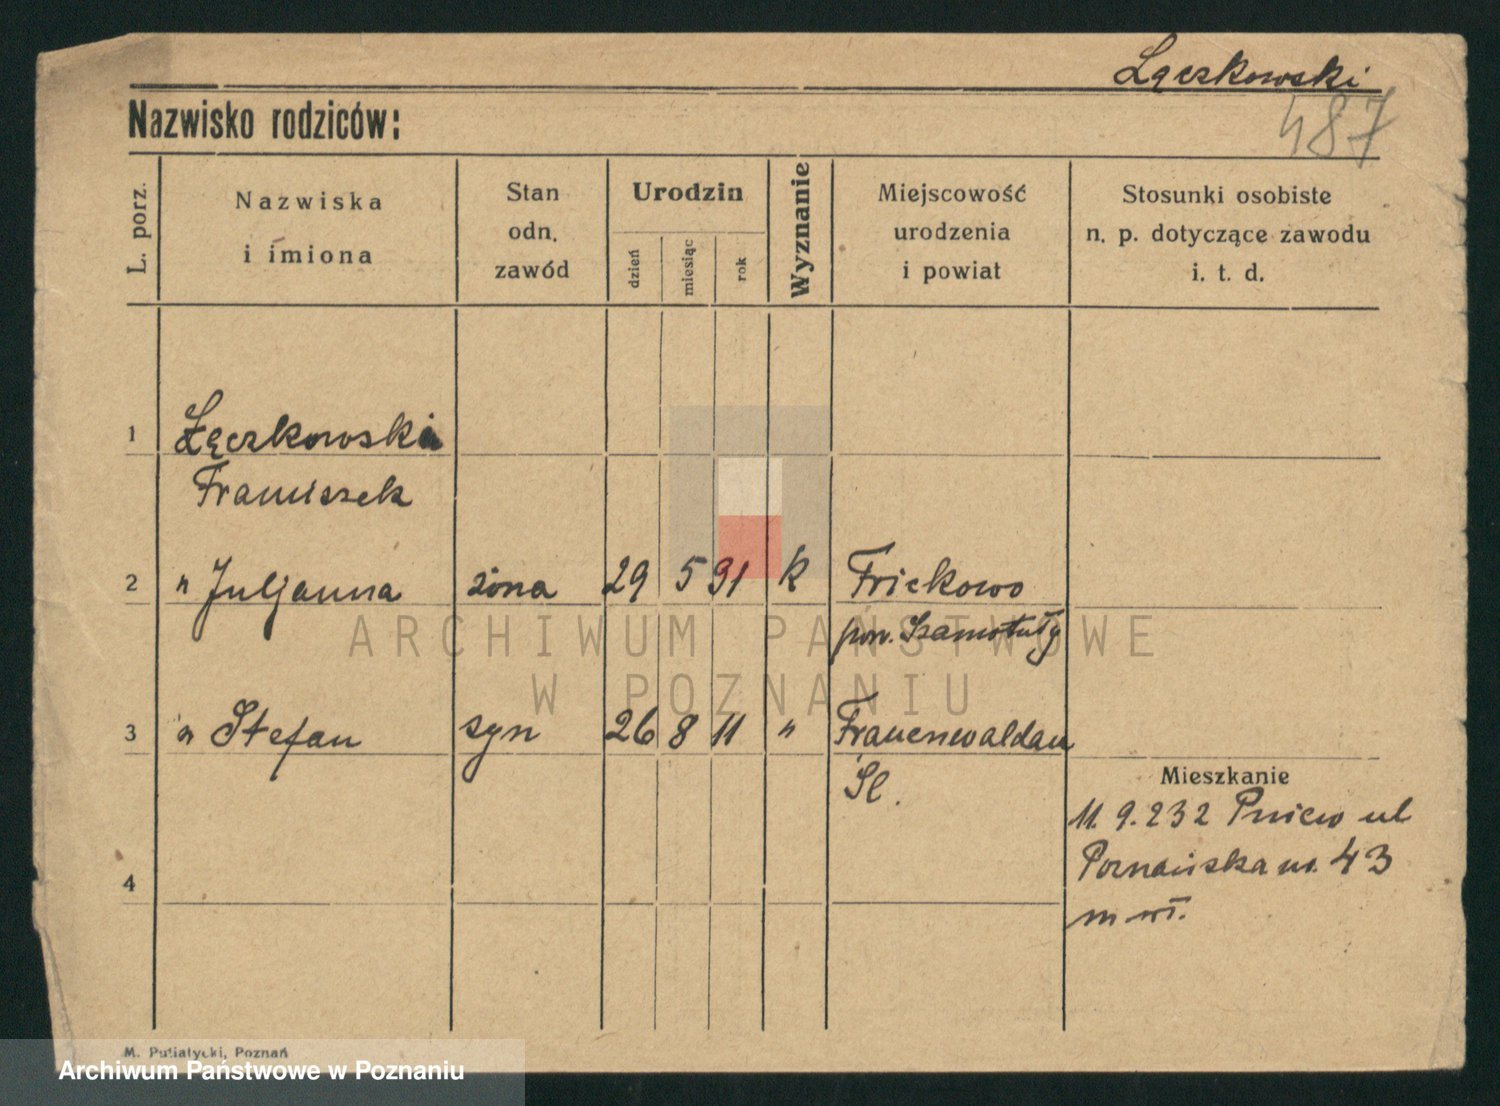 Łączkowski
Nazwisko rodziców:
487
L. porz.
Nazwiska
i imiona
Stan
odn.
zawód
Urodzin
dzień
miesiąc
rok
Wyznanie
Miejscowość
urodzenia
i powiat
Stosunki osobiste
n. p. dotyczące zawodu
i. t. d.
1 Łączkowski
Franciszek
2 " Juljanna żona 29 5 91 k Frickowo
pow. Szamotuły
ARCHIWUM PAŃSTWOWE
W POZNANIU
3 " Stefan syn 26 8 11 " Frauenwaldau
Śl.
Mieszkanie
11. 9. 232 Pniew ul
Poznańska nr. 43
4
m wł.
M. Putiatycki, Poznań
Archiwum Państwowe w Poznaniu